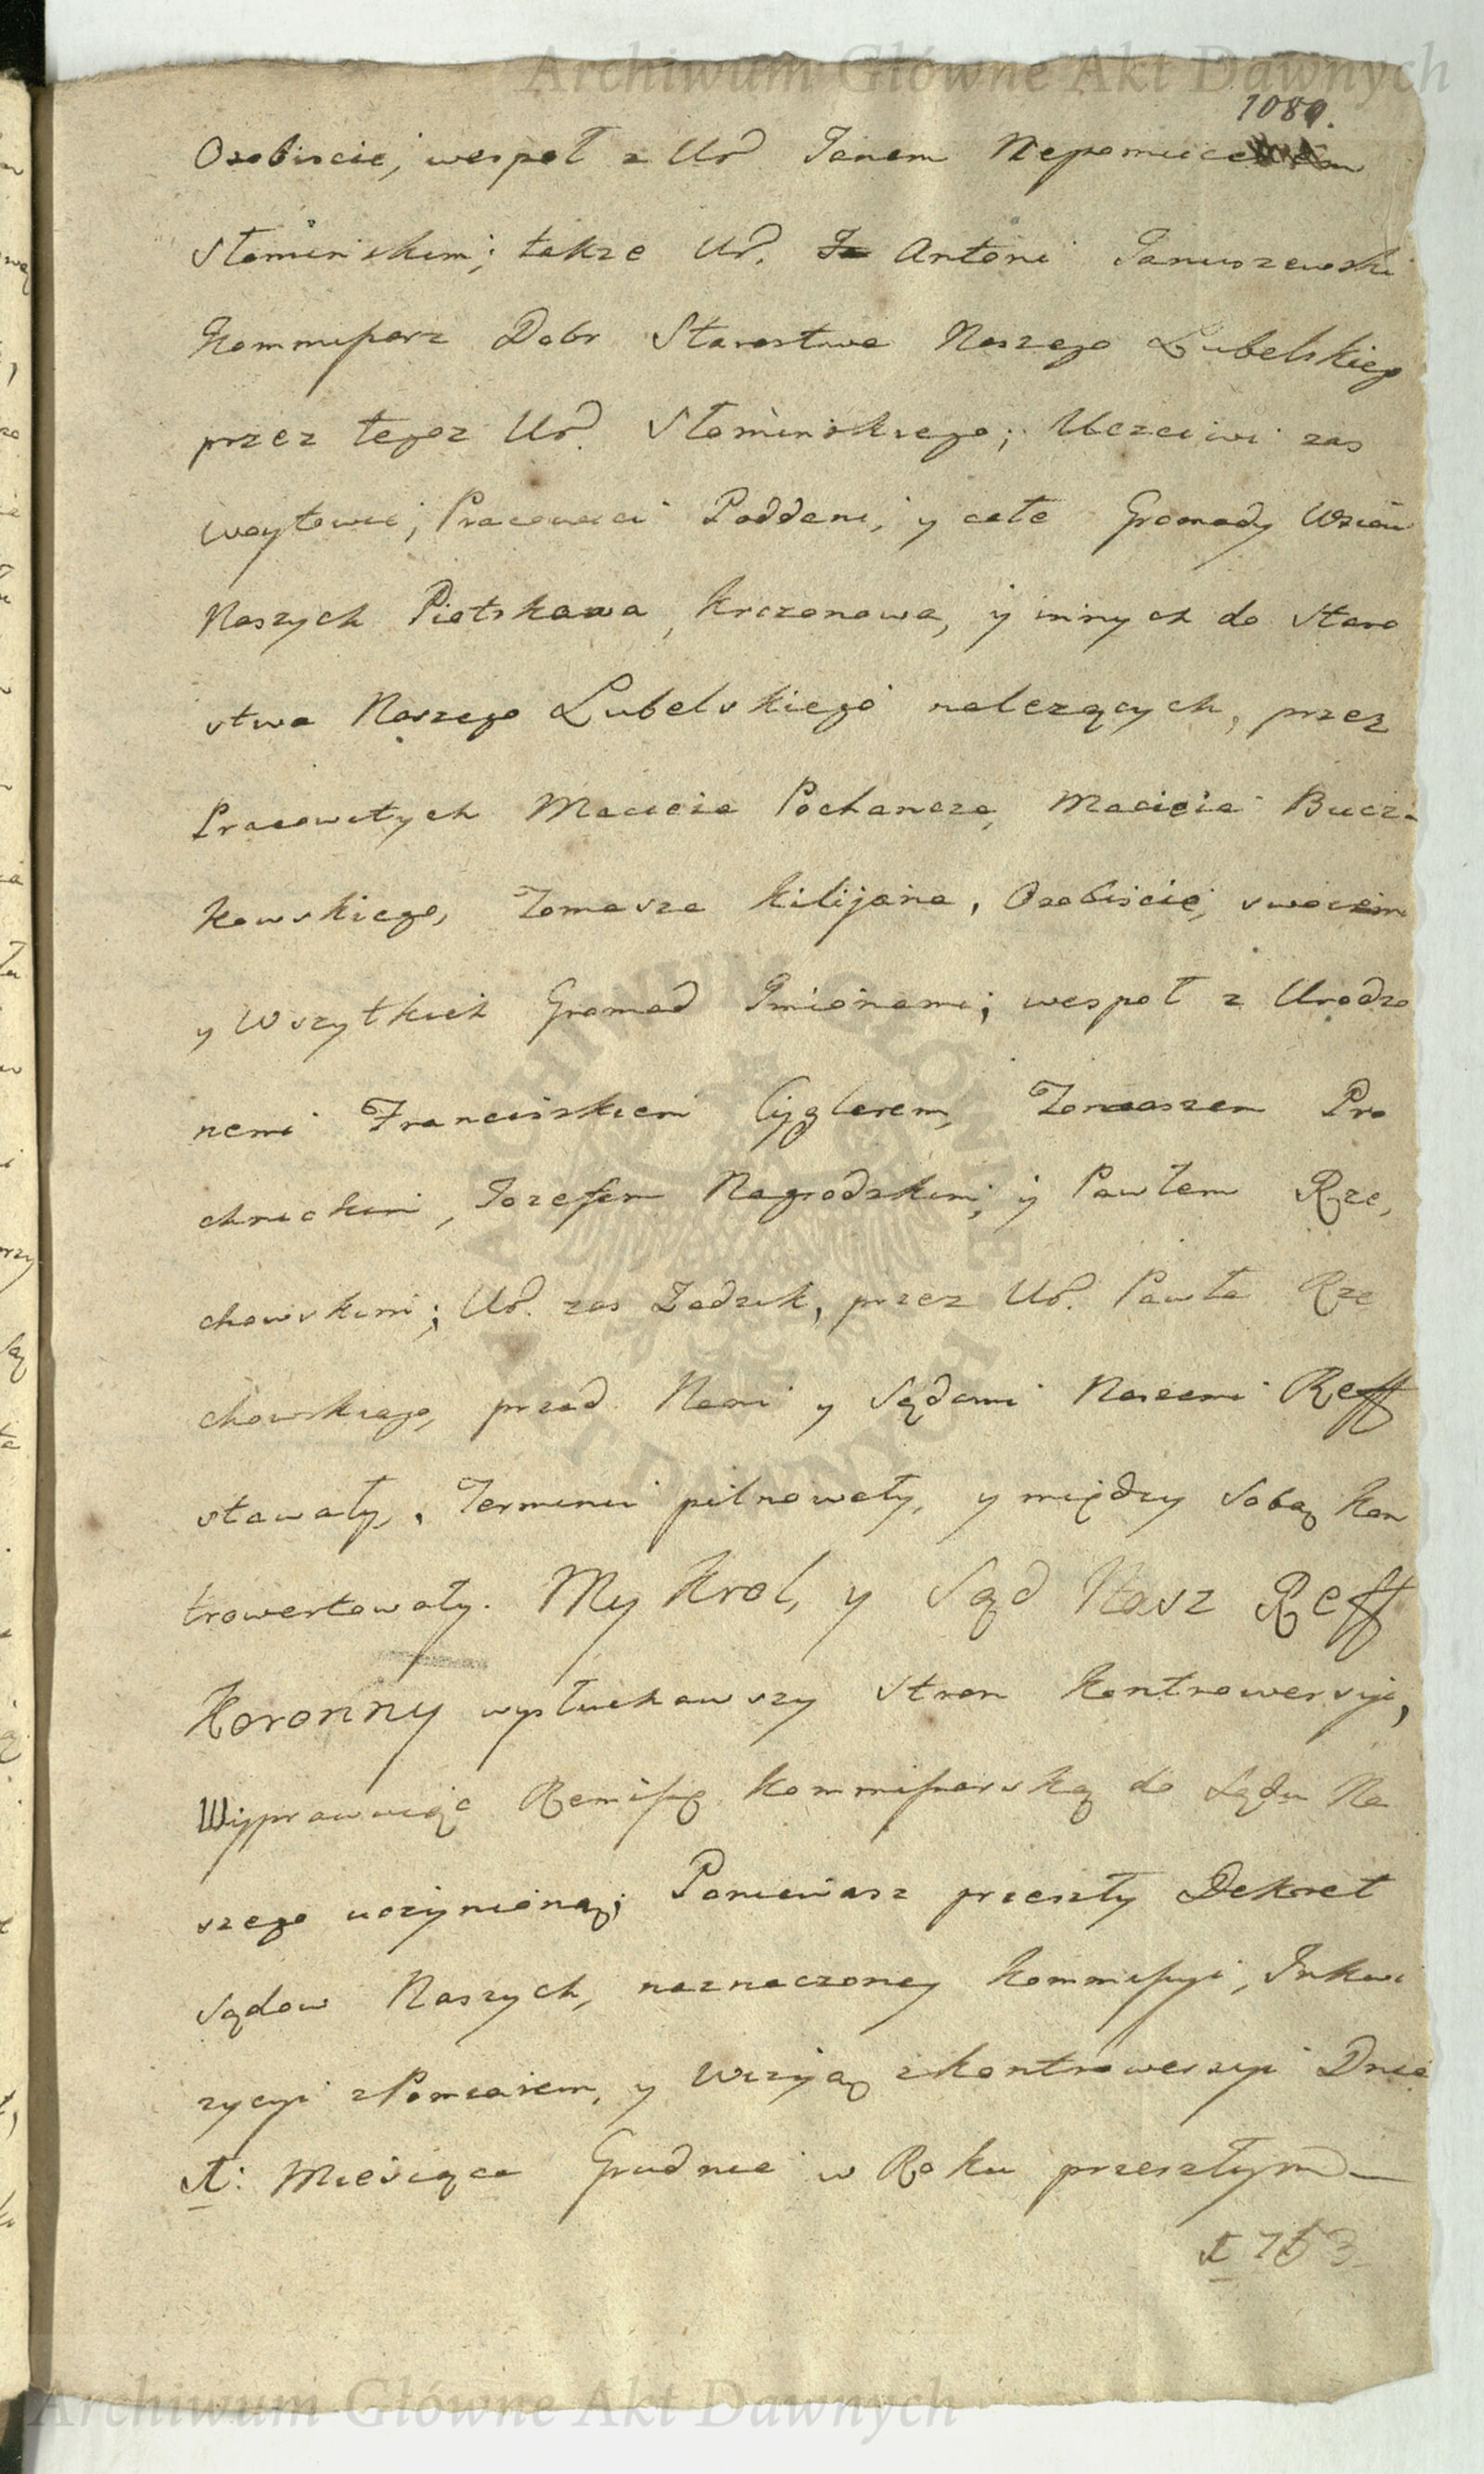 Archiwum Główne Akt Dawnych
1080.
Osobiscie, wespoł z Ur Janem Nepomucenem
Słomińskim; takze Ur. Antoni Januszewski
Kommissarz Dobr Starostwa Naszego Lubelskiego
przez tegoz Ur. Słomińskiego; Uczciwi zas
woytowie, Pracowici Poddani, y całe Gromady Wsiow
Naszych Piotrkowa, Krczonowa, y innych do Staro
stwa Naszego Lubelskiego nalezących, przez
Pracowitych Macieia Pochancza, Macieia Bucz-
kowskiego, Tomasza Kilijana, Osobiscie, swoiem
y Wszytkich Gromad Jmionami; wespoł z Urodzo
nemi Franciszkiem Cyglerem, Tomaszem Pro
chnickim, Jozefem Nagrodzkim, y Pawłem Rze,
chowskim; Ur. zas Zadzik, przez Ur. Pawła Rze
chowskiego, przed Nami y Sądami Naszemi Reff
stawały, Terminu pilnowały, y między Sobą Kon
trowertowały. My Krol, y Sąd Nasz Reff
Koronny wysłuchawszy Stron Kontrowersyi,
Wyprawuiąc Remissę Kommissarską do Sądu Na
szego uczynioną; Poniewasz przeszły Dekret
Sądow Naszych, naznaczoney Kommissyi, Inkwi
zycyi z Pomiarem, y Wizyą z kontrowersyi Dnia
1: Miesiąca Grudnia w Roku przeszłym
1753
Archiwum Główne Akt Dawnych